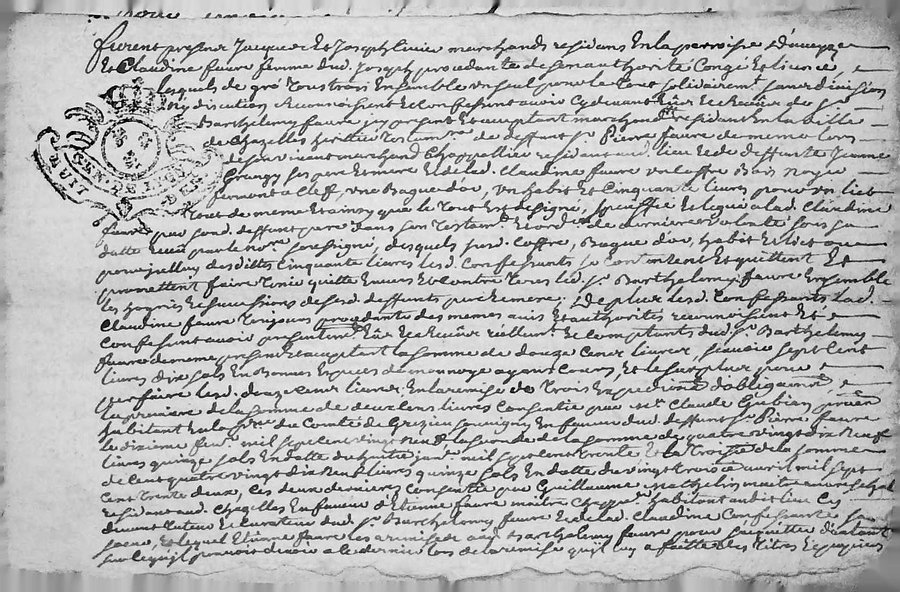 furent presens Jacques Et Joseph livier marchands residans En la parroisse d'aveyze
Et Claudine faure femme dud. Joseph procedante de son authorité Congé Et licence
lesquels de gré Tous trois Ensemble un seul pour le tout solidairemt. sans division
ny discution reconnoissent Et confessent avoir Cy devant Eu et Receu de sr.
Barthelemy faure icy present Et acceptant marchand residant En la ville
de Chazelles heritier Testamre. de deffunt sr. Pierre faure de meme lors
vivant marchand Chappellier residant aud. lieu Et de deffunte Jeanne
Grangy ses pere Et mere Et de lad. Claudine faure un coffre Bois noyer
fermant a Cleff, une Bague d'or, un habit Et Cinquante livres pour un lict
tout de meme Et ainsy que le tout Est designé, specifié Et legué a lad. Claudine
faure par sond. deffunt pere dans son Testamt. Et ordce. de derniere volonté sous sa
datte receu par le nore. soussigné, desquels susd. coffre, Bague d'or, habit Et lict ou
pour icelluy desdittes Cinquante livres lesd. Confessants se Contentent Et quittent Et
promettent faire Tenir quitte Envers Et contre Tous led. sr. Barthelemy faure Ensemble
les hoyries Et successions de sesd. deffunts pere Et mere; De plus lesd. Confessants lad.
Claudine faure Toujours procedante des memes avis Et authorités reconnoissent Et
Confessent avoir presentemt. Eu et Receu reellemt. Et comptant dud. sr. Barthelemy
faure de meme present Et acceptant la somme de douze Cent livres, sçavoir sept Cent
livres dix sols En Bonnes Especes de monnoye ayant Cours, Et le surplus pour
perfaire lesd. douze Cent livres En la remise de Trois Expeditions d'obligations
la premiere de la somme de deux Cens livres Consentie par Mr. Claude Gubian
habitant En la psse. de Comte de Grezieu souvigny En faveur dud. deffunt sr. Pierre faure
le dixieme fevr. mil sept cent vingt neuf la seconde de la somme de quatre vingt dix neuf
livres quinze sols En datte du huitie janv. mil sept cent trente Et la Troisie de la somme
de Cent quatre vingt dix neuf livres quinze sols En datte du vingt trois avril mil sept
Cent Trente deux, Ces deux dernieres Consenties par Guillaume mathelin maitre
residant aud. Chazelles En faveur d'Etienne faure maitre Chappr. habitant audit lieu Cy
devant tuteur Et curateur dud. sr. Barthelemy faure Et de lad. Claudine Confessante sa
soeur, Et lequel Etienne faure les a remises aud. Barthelemy faure pour s'acquitter d'autant
sur ce qu'il pouvoit devoir a le dernier lors de la remise qu'il luy a faitte des Titres Et papiers